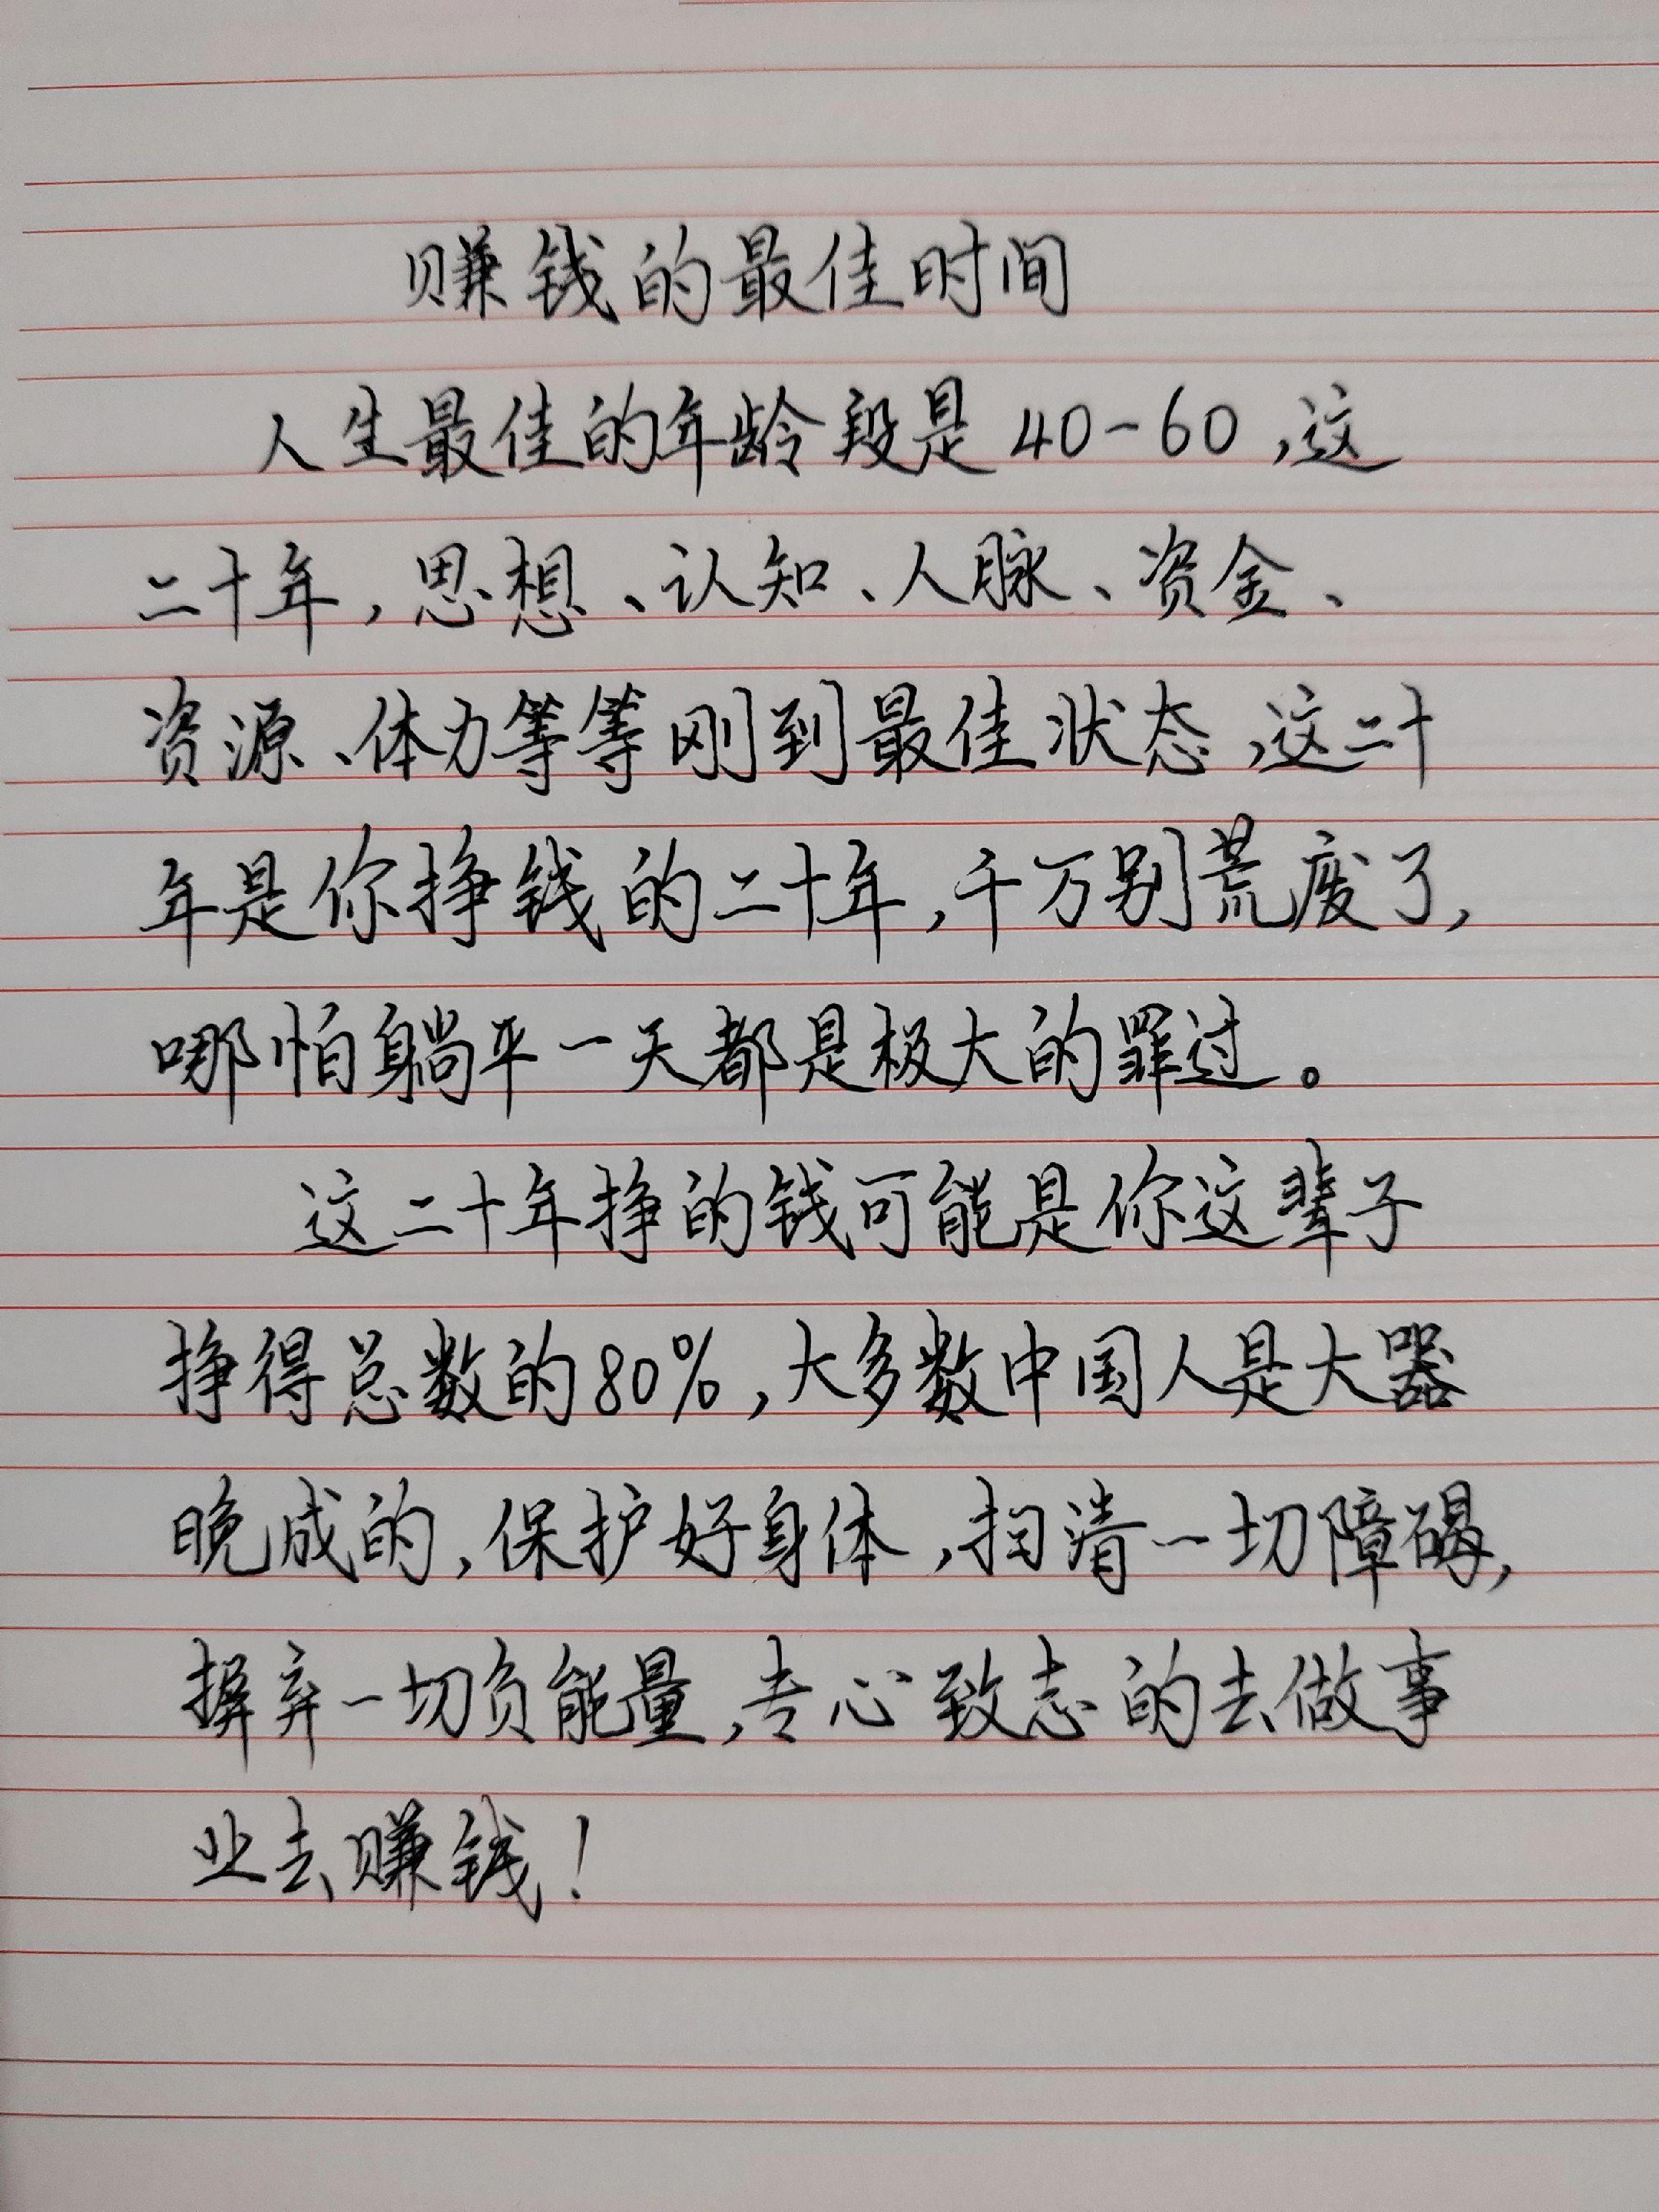 赚钱的最佳时间
人生最佳的年龄段是40-60,这
二十年,思想、认知、人脉、资金、
资源、体力等等刚到最佳状态,这二十
年是你挣钱的二十年,千万别荒废了,
哪怕躺平一天都是极大的罪过。
这二十年挣的钱可能是你这辈子
挣得总数的80%,大多数中国人是大器
晚成的,保护好身体,扫清一切障碍,
摒弃一切负能量,专心致志的去做事
业去赚钱!